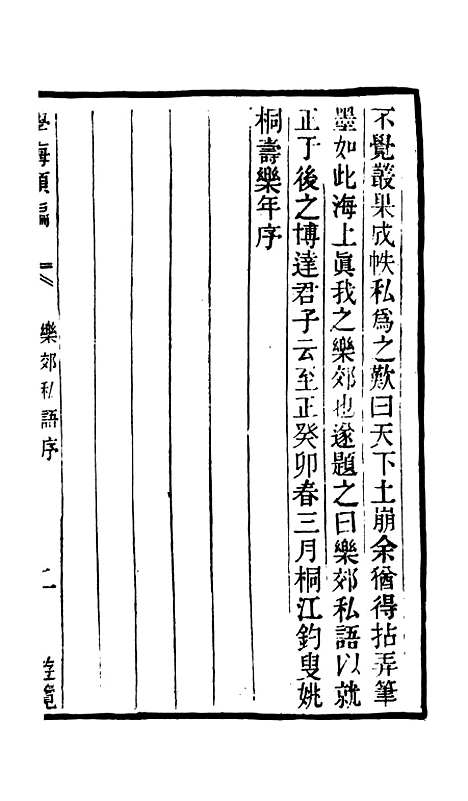 不覺叢杲成帙私爲之歎曰天下土崩余猶得拈弄筆
墨如此海上眞我之樂郊也遂題之曰樂郊私語以就
正于後之博達君子云至正癸卯春三月桐江釣叟姚
桐壽樂年序
學海類編
樂郊私語序
二
遊覽